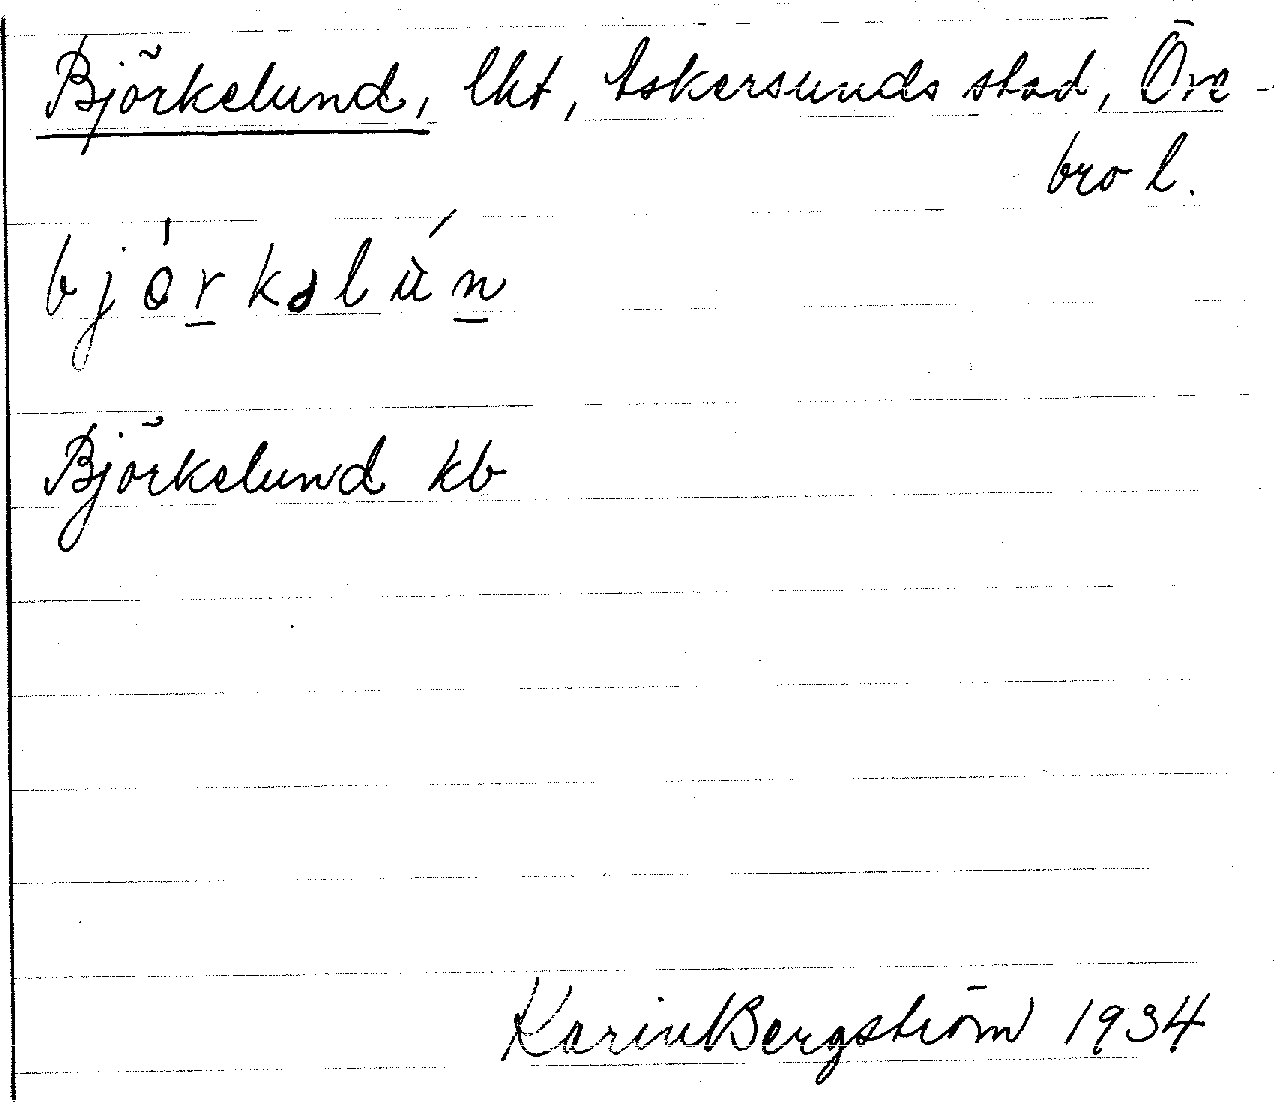 Björkelund, lht, Askersunds stad, Öre-
bro l.
bjó̀rkəlùń
Björkelund kb
Karin Bergström 1934